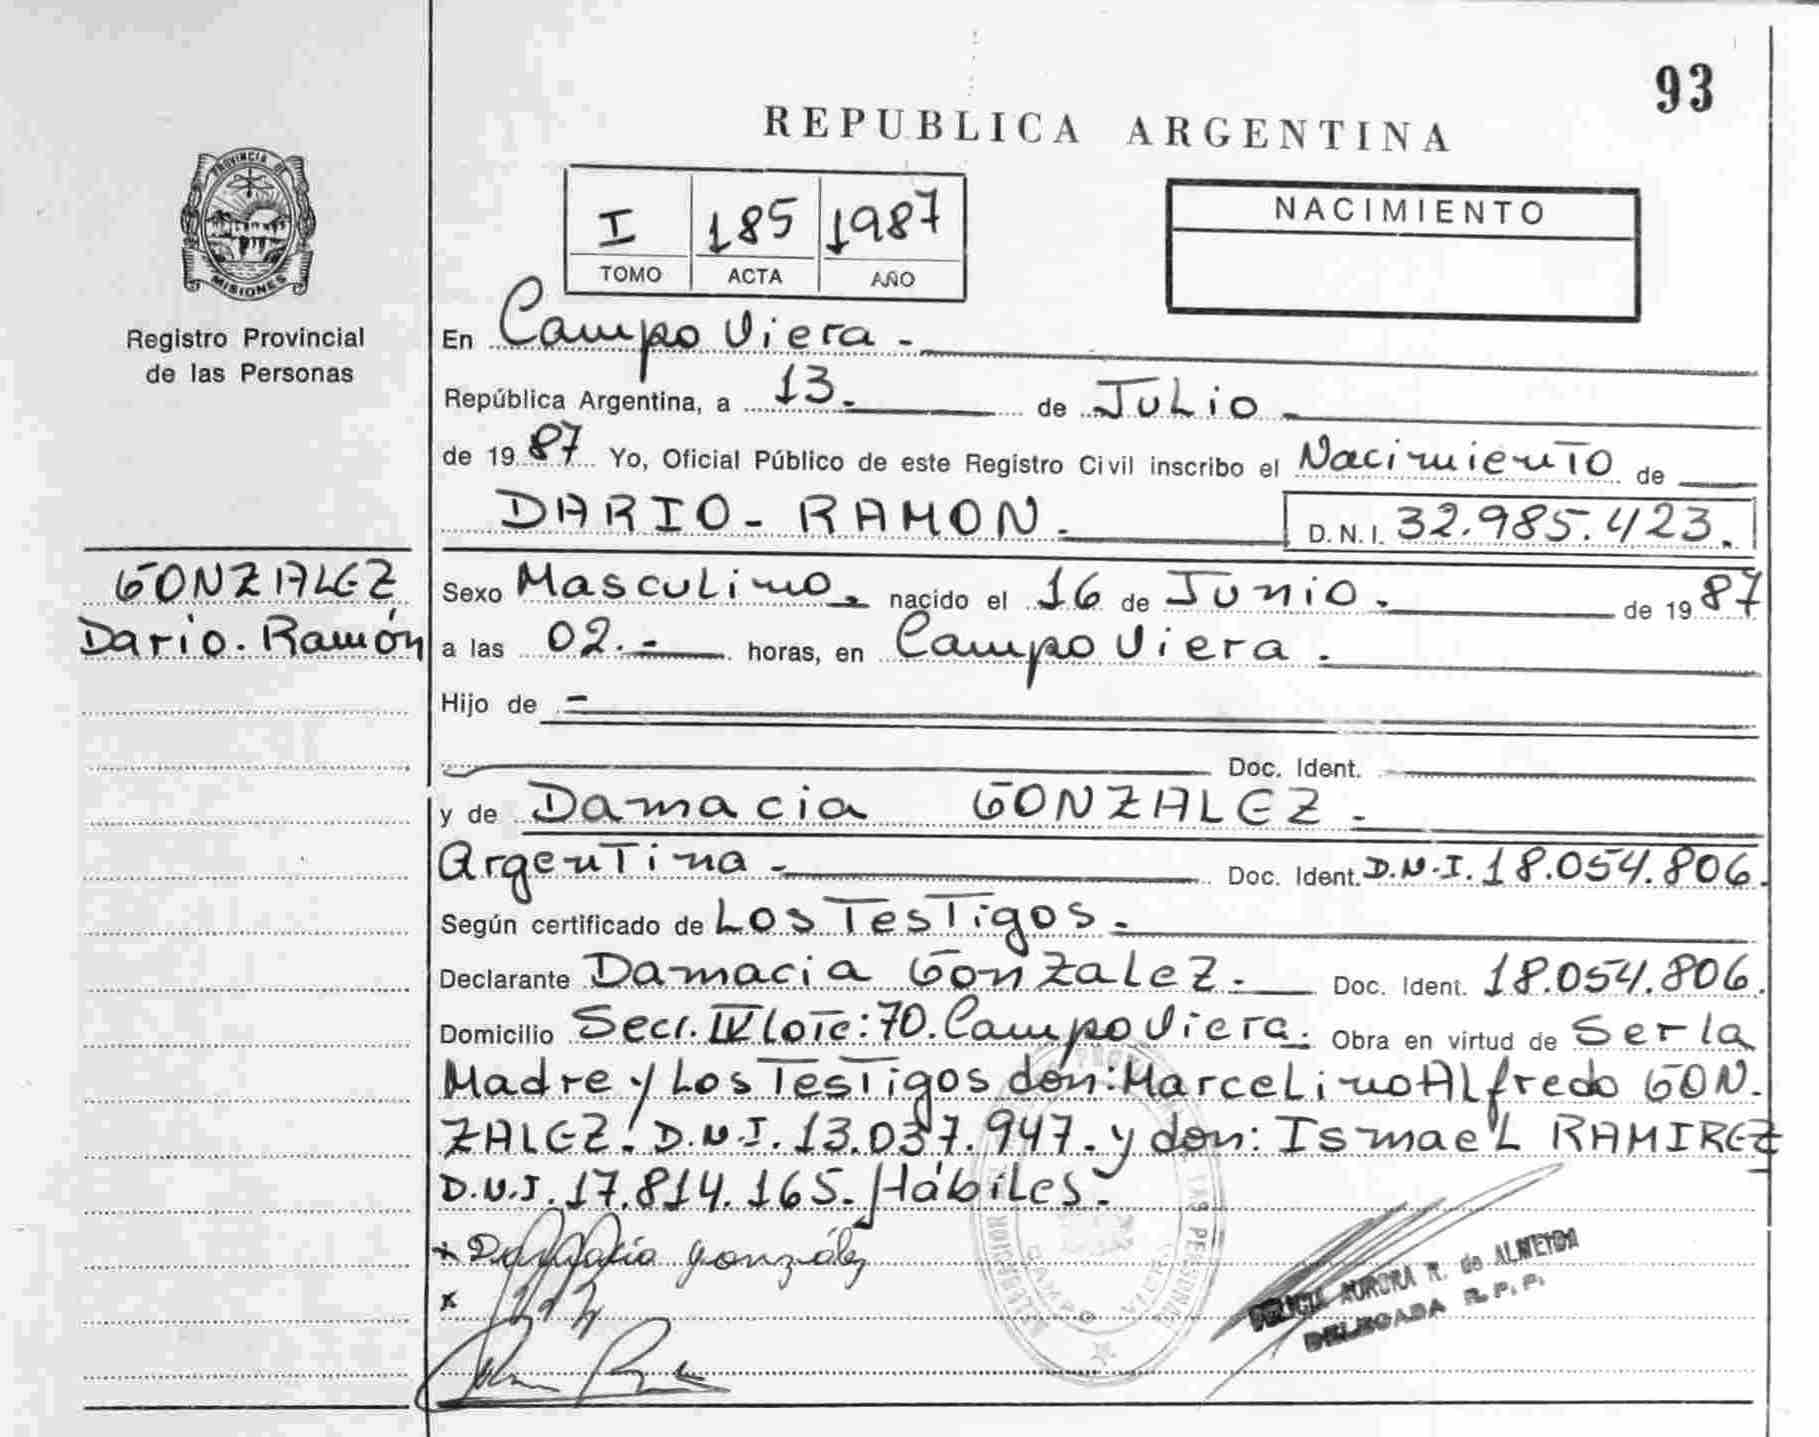 93
REPUBLICA ARGENTINA
PROVINCIA DE
MISIONES
Registro Provincial
de las Personas
I 185 1987
TOMO ACTA AÑO
NACIMIENTO
En Campo Viera.-
República Argentina, a 13.- de Julio.-
de 1987 Yo, Oficial Público de este Registro Civil inscribo el Nacimiento de
DARIO - RAMON.- D.N.I. 32.985.423.
GONZALEZ
Dario. Ramón
Sexo Masculino.- nacido el 16 de Junio.- de 1987
a las 02.- horas, en Campo Viera.-
Hijo de -
Doc. Ident.
y de Damacia GONZALEZ.-
Argentina.- Doc. Ident. D.N.I. 18.054.806.
Según certificado de Los Testigos.-
Declarante Damacia Gonzalez.- Doc. Ident. 18.054.806.
Domicilio Secc. IV Lote: 70. Campo Viera. Obra en virtud de Ser la
Madre y Los Testigos don: Marcelino Alfredo GON.
ZALEZ. D.N.I. 13.037.947. y don: Ismael RAMIREZ
D.N.I. 17.814.165. Hábiles.-
x Damacia gonzález
x
CAMPO VIERA
LAS PERSONAS
AURORA R. de ALMEIDA
DELEGADA R.P.P.